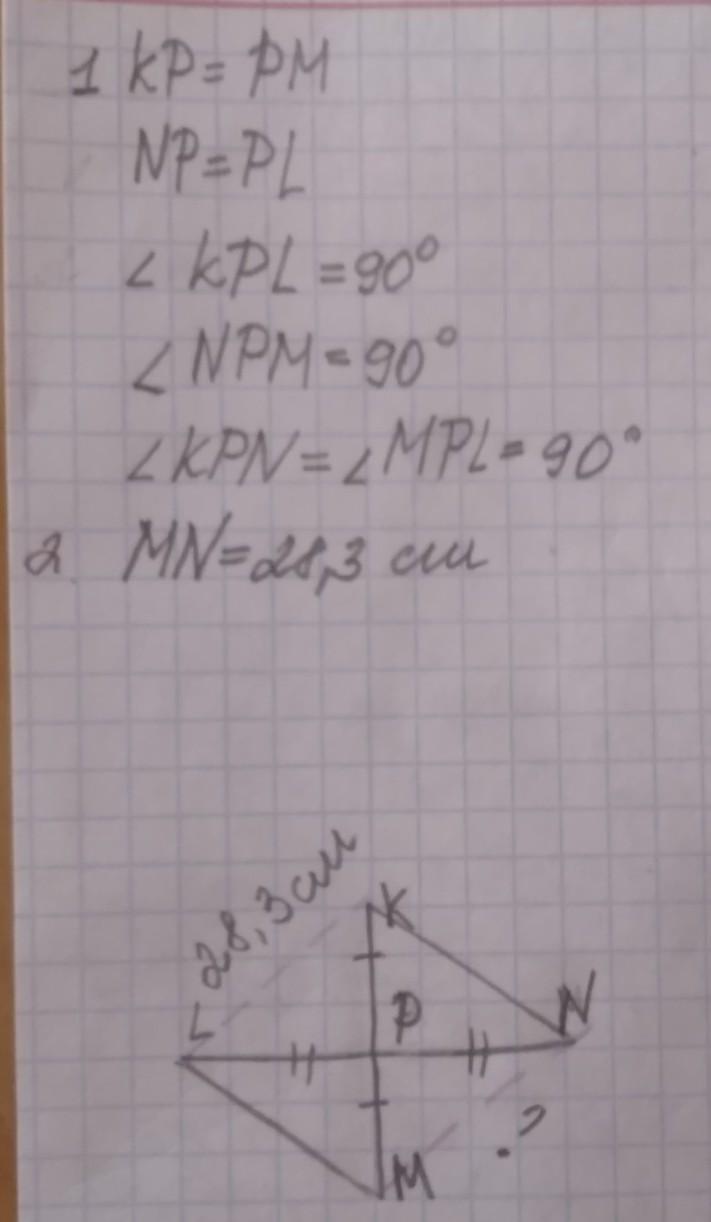 1 KP = PM
NP = PL
∠ KPL = 90°
∠ NPM = 90°
∠KPN = ∠MPL = 90°
2 MN = 28,3 см
28,3 см
K
L
P
N
?
M